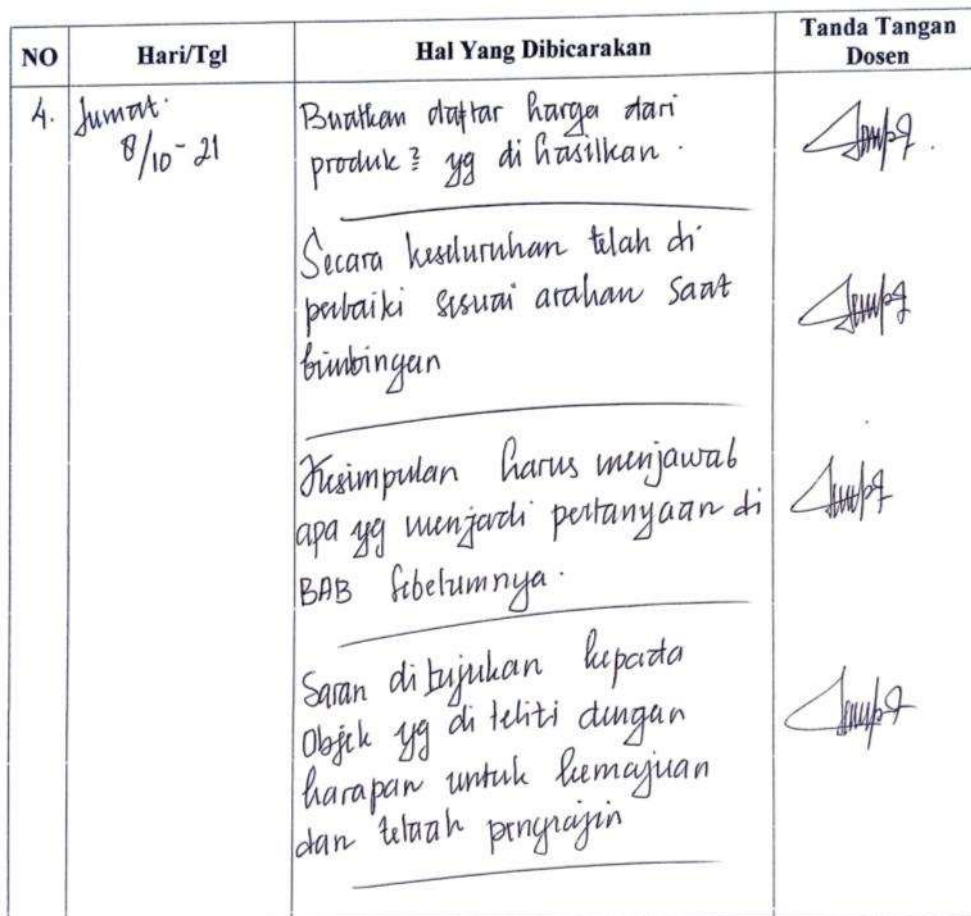 NO Hari/Tgl Hal Yang Dibicarakan Tanda Tangan Dosen
4. Jumat 8/10-21
Buatkan daftar harga dari
produk² yg di hasilkan.
Secara keseluruhan telah di
perbaiki sesuai arahan saat
bimbingan
Kesimpulan harus menjawab
apa yg menjadi pertanyaan di
BAB sebelumnya.
Saran di tujukan kepada
Objek yg di teliti dengan
harapan untuk kemajuan
dan telaah pengrajin